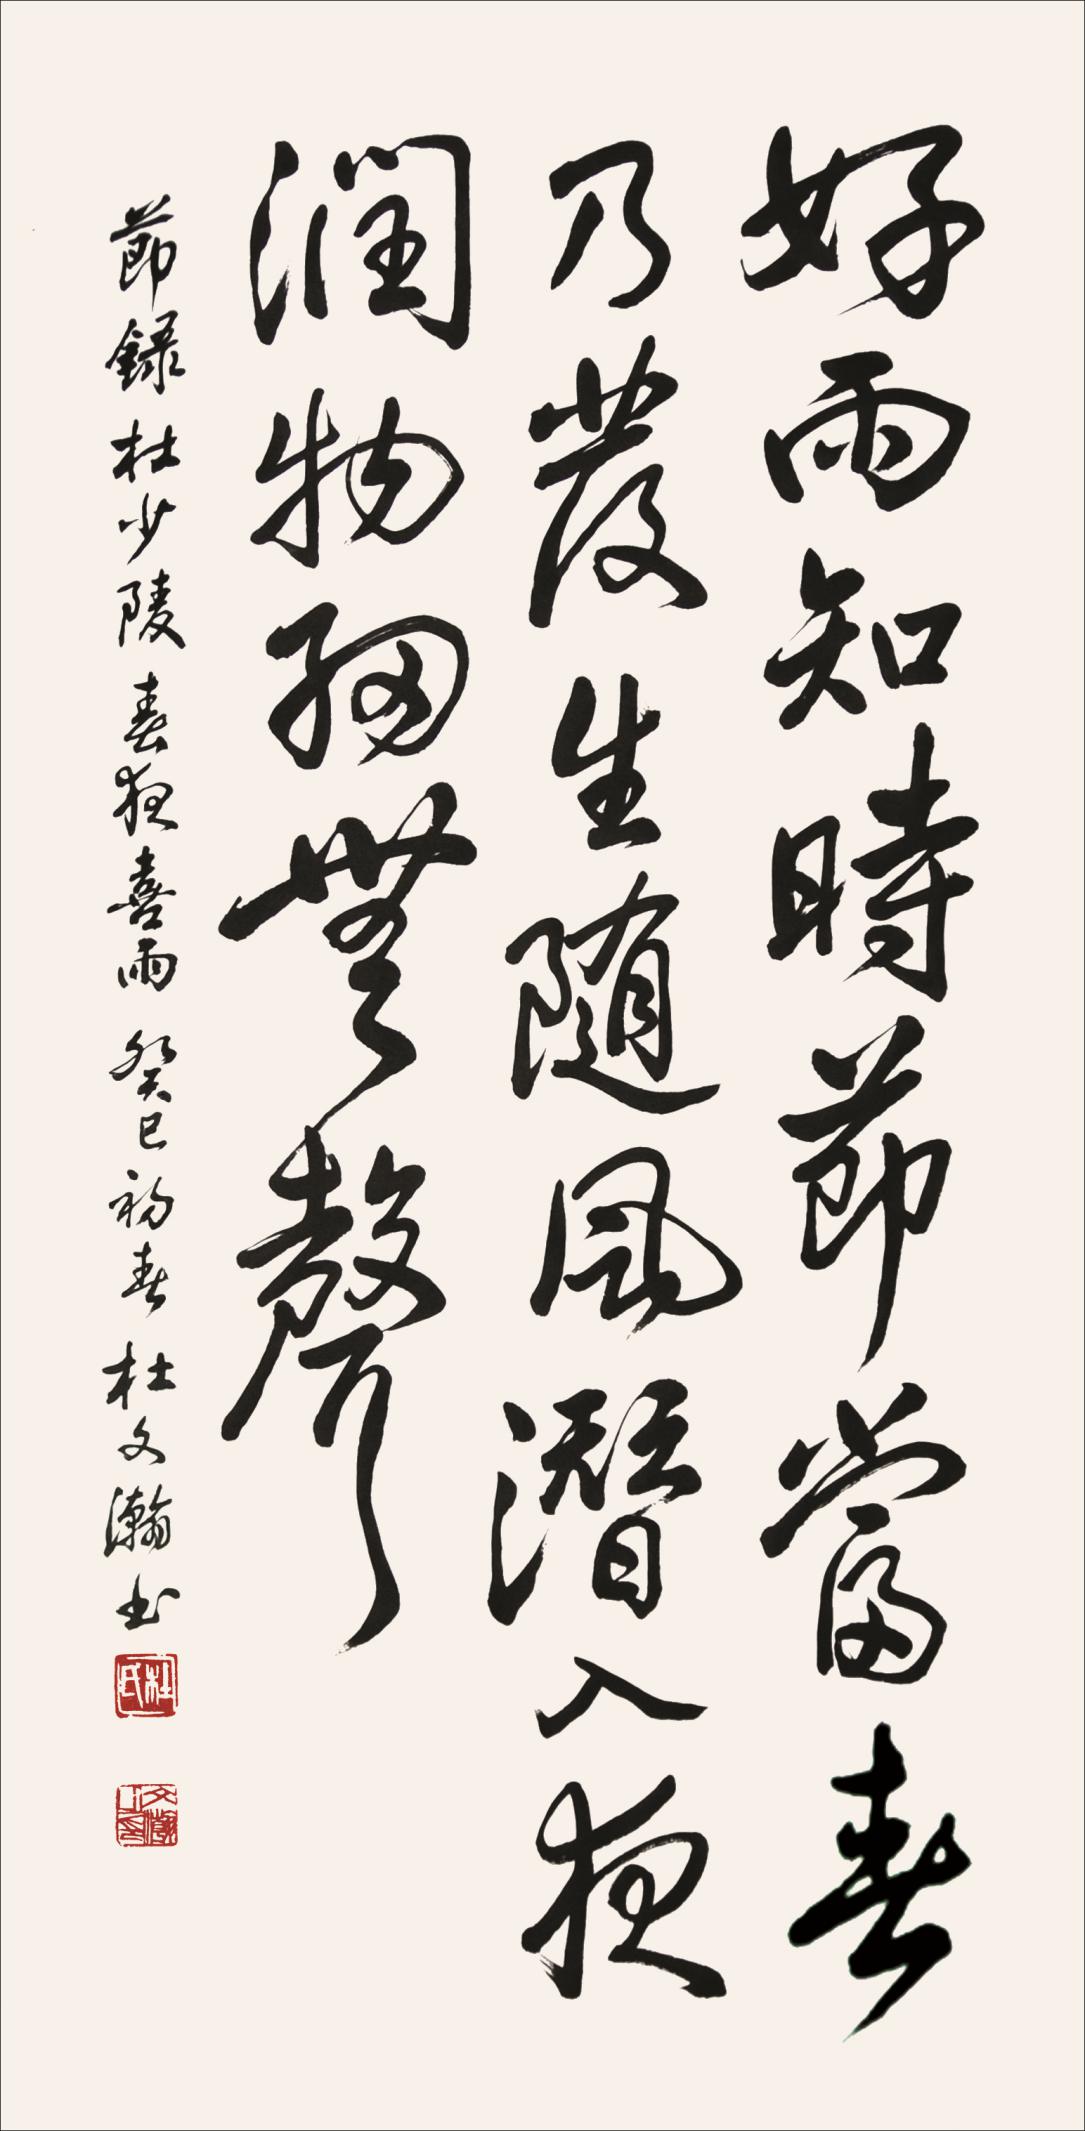 好雨知時節當春
乃發生隨風潛入夜
潤物細無聲
節錄杜少陵春夜喜雨 癸巳初春 杜文瀚书
杜氏